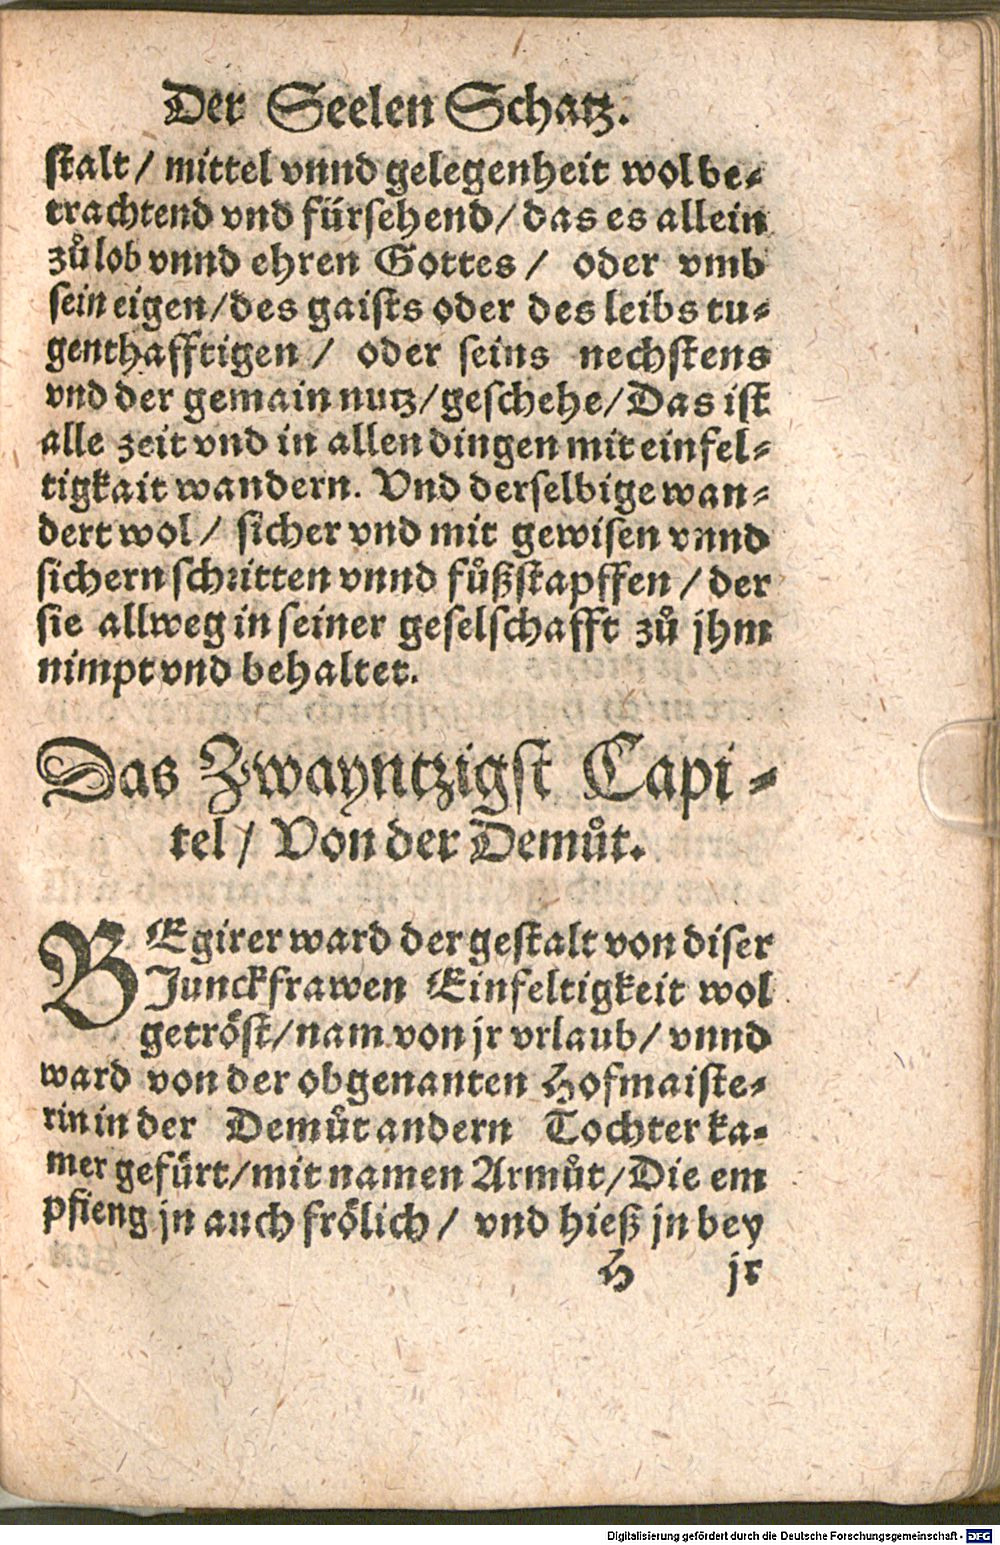 Der Seelen Schatz.
stalt / mittel vnnd gelegenheit wol be-
trachtend vnd fürsehend / das es allein
zů lob vnnd ehren Gottes / oder vmb
sein eigen / des gaists oder des leibs tu-
genthafftigen / oder seins nechstens
vnd der gemain nutz / geschehe / Das ist
alle zeit vnd in allen dingen mit einfel-
tigkait wandern. Vnd derselbige wan-
dert wol / sicher vnd mit gewisen vnnd
sichern schritten vnnd fůßstapffen / der
sie allweg in seiner geselschafft zů jhm
nimpt vnd behaltet.
Das Zwayntzigst Capi-
tel / Von der Demůt.
BEgirer ward der gestalt von diser
Junckfrawen Einfeltigkeit wol
getröst / nam von jr vrlaub / vnnd
ward von der obgenanten Hofmaiste-
rin in der Demůt andern Tochter ka-
mer gefürt / mit namen Armůt / Die em
pfieng jn auch frölich / vnd hieß jn bey
H jr
Digitalisierung gefördert durch die Deutsche Forschungsgemeinschaft - DFG